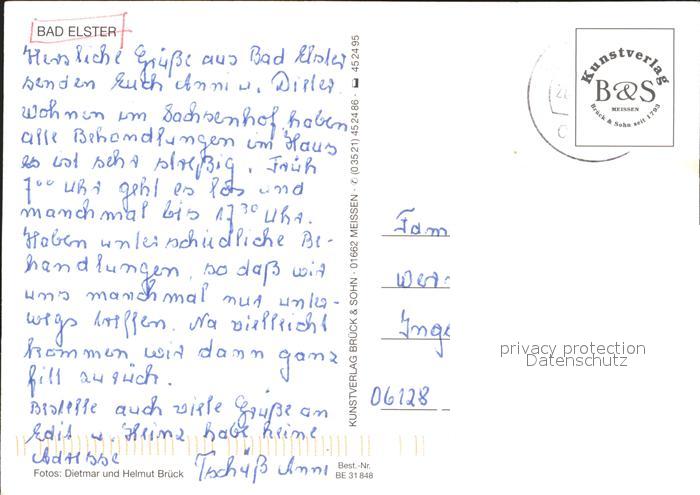 BAD ELSTER
Herzliche Grüße aus Bad Elster
senden Euch Anni u. Dieter.
Wohnen im Sachsenhof haben
alle Behandlungen im Haus
es ist sehr streßig. Früh
7⁰⁰ Uhr geht es los und
manchmal bis 17³⁰ Uhr.
Haben unterschiedliche Be-
handlungen, so daß wir
uns manchmal nur unter-
wegs treffen. Na vielleicht
kommen wir dann ganz
fitt zurück.
Bestelle auch viele Grüße an
Edit u. Heinz habe keine
Adresse
Tschüß Anni
Fotos: Dietmar und Helmut Brück
Best.-Nr.
BE 31 848
KUNSTVERLAG BRÜCK & SOHN · 01662 MEISSEN · ✆ (0 35 21) 45 24 86 · 45 24 95
Kunstverlag
B&S
MEISSEN
Brück & Sohn seit 1793
Fam
Wer
Inge
06128
privacy protection
Datenschutz